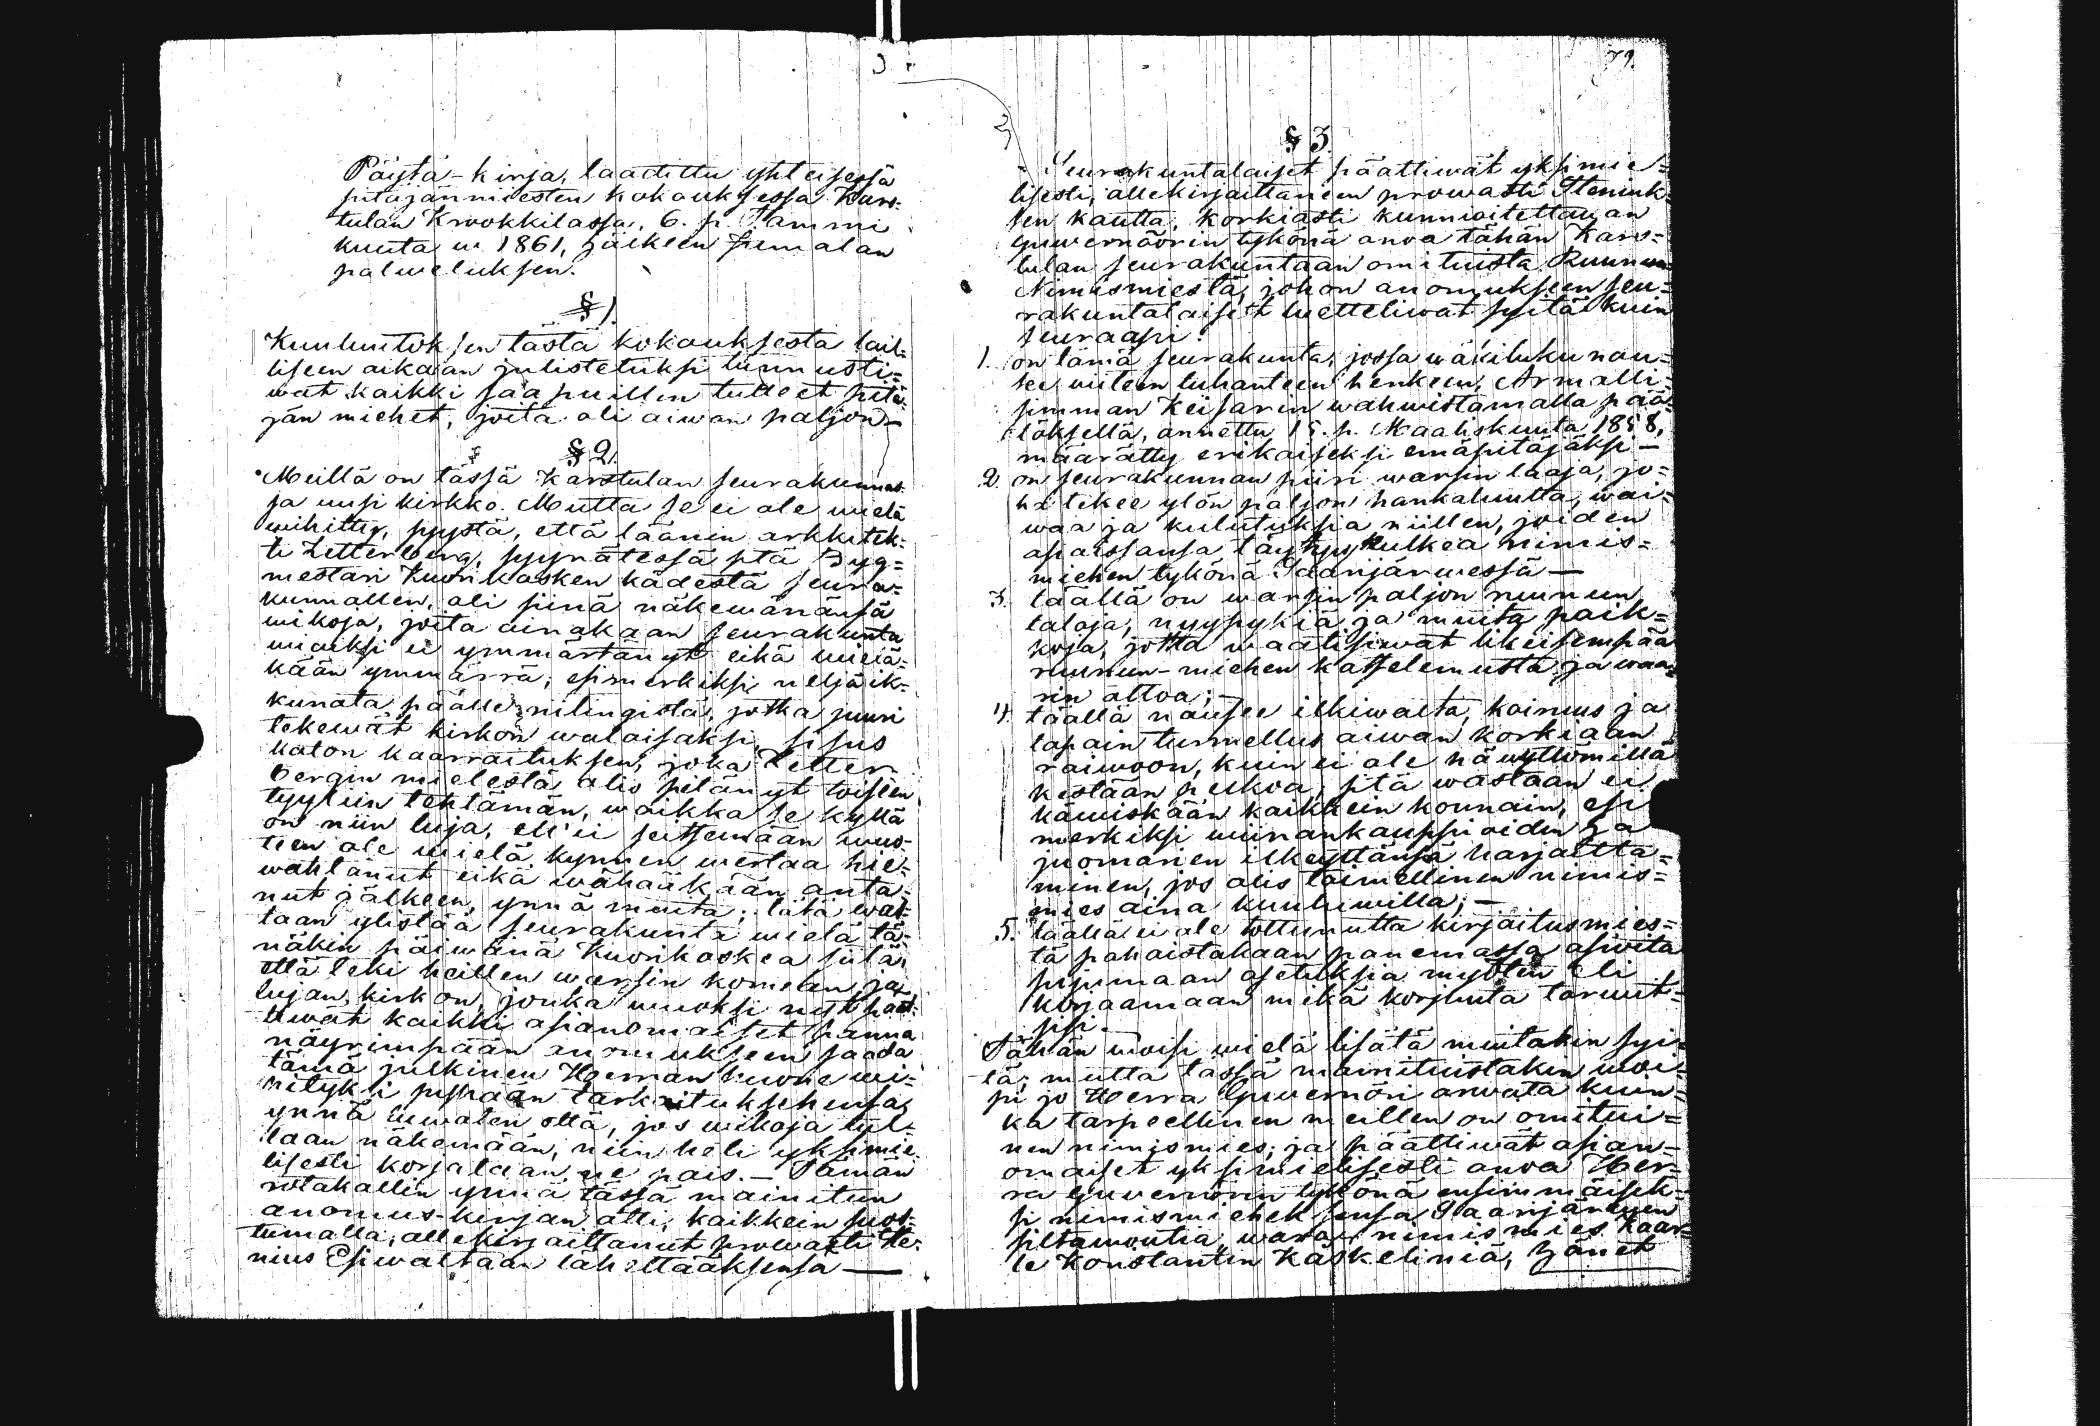 Päytä-kirja, laadittu yhteisessä
pitäjänmiesten kokouksessa Kars-
tulan Krookkilassa, 6. p. Tammi
kuuta w 1861, jälkeen Jumalan
palweluksen.
§ 1.
Kuulutuksen tästä kokouksesta lail-
liseen aikaan julistetuksi tunnusti-
wat kaikki saapuillen tulleet pitä-
jän miehet, joita oli aiwan paljon—
§ 2.
Meillä on tässä Karstulan seurakunnas-
sa uusi kirkko. Mutta se ei ole wielä
wihitty, syystä, että läänin arkkitek-
ti Zetterberg, syynätessä sitä Byg-
mestari Kuorikosken kädestä seura-
kunnallen, oli siinä näkewänänsä
wikoja, joita ainakaan seurakunta
wioiksi ei ymmärtänyt eikä wielä-
kään ymmärrä, esimerkiksi neljäik-
kunata päälle rilingistä, jotka juuri
tekewät kirkon walaisaksi, sisus
katon kaarraituksen, joka Zetter
bergin mielestä olis pitänyt toiseen
tyyliin tehtämän, waikka se kyllä
on niin luja, ett'ei seitsemään wuo-
teen ole wielä kymmen wertaa hie-
wahtanut eikä wähääkään anta-
nut jälkeen, ynnä muuta; tätä was-
taan ylistää seurakunta wielä tä-
näkin päiwänä Kuorikoskea siitä,
että teki heillen warsin komelan ja
lujan kirkon, jonka wuoksi nyt päät-
tiwät kaikki asianomaiset panna
näyrimpään anomukseen saada
tämä julkinen Herran huone wi-
hityksi pyhään tarkoitukseensa,
ynnä luwaten että, jos wikoja tul-
laan näkemään, niin heti yksimie-
lisesti korjataan ne pois. — Tämän
rotakallin ynnä tässä mainitun
anomus-kirjan otti, kaikkein suos-
tumalla, allekirjoittanut prowasti Ste-
nius Esiwaltaan lähettääksensä —
79.
§ 3.
Seurakuntalaiset päättiwät yksimie-
lisesti, allekirjoittaneen prowasti Steniuk-
sen kautta, korkiasti kunnioitettawan
Guwernöörin tykönä anoa tähän Kars-
tulan seurakuntaan omituista Ruunun
Nimismiestä, johon anomukseen seu-
rakuntalaiset luetteliwat syitä kuin
seuraapi:
1. on tämä seurakunta, jossa wäkiluku nou-
see wiiteen tuhanteen henkeen, Armolli-
simman Keisarin wahwistamalla pää-
töksellä, annettu 15. p. Maaliskuuta 1858,
määrätty erikaiseksi emäpitäjäksi —
2. on seurakunnan piiri warsin laaja, jo-
ka tekee ylön paljon hankaluutta, wai-
waa ja kulutuksia niillen, joiden
asioissansa täytyy kulkea nimis-
miehen tykönä Saarijärwessä —
3. täällä on warsin paljon ruunun
taloja, nyypykiä ja muita paik-
koja, jotka waatisiwat likeisempää
ruunun-miehen katselemusta ja waa-
rin ottoa; —
4. täällä nousee ilkiwalta, koiruus ja
tapain turmellus aiwan korkiaan
raiwoon, kuin ei ole näwyttömillä
ketään pelkoa, sitä wastaan ei
kämiskään kaikkein kounain, esi
merkiksi wiinankauppioiden ja
juomarien ilkeyttänsä harjoitta-
minen, jos olis toimellinen nimis-
mies aina kuuluwilla; —
5. täällä ei ole tottunutta kirjoitusmies-
tä pahaistakaan panemassa asioita
sujumaan asetuksia myöten eli
korjaamaan mikä korjuuta tarwit-
sisi. —
Tähän woisi wielä lisätä muitakin syi-
tä; mutta tässä mainituistakin woi-
pi jo Herra Guwernöri arwata kuin-
ka tarpeellinen meillen on omitui-
nen nimismies; ja päättiwät asian-
omaiset yksimielisesti anoa Her-
ra Guwernörin tykönä ensimmäisek-
si nimismieheksensä Saarijärwen
siltawoutia, warsin nimismies Kaar-
le Konstantin Kaskelinia, Jänet